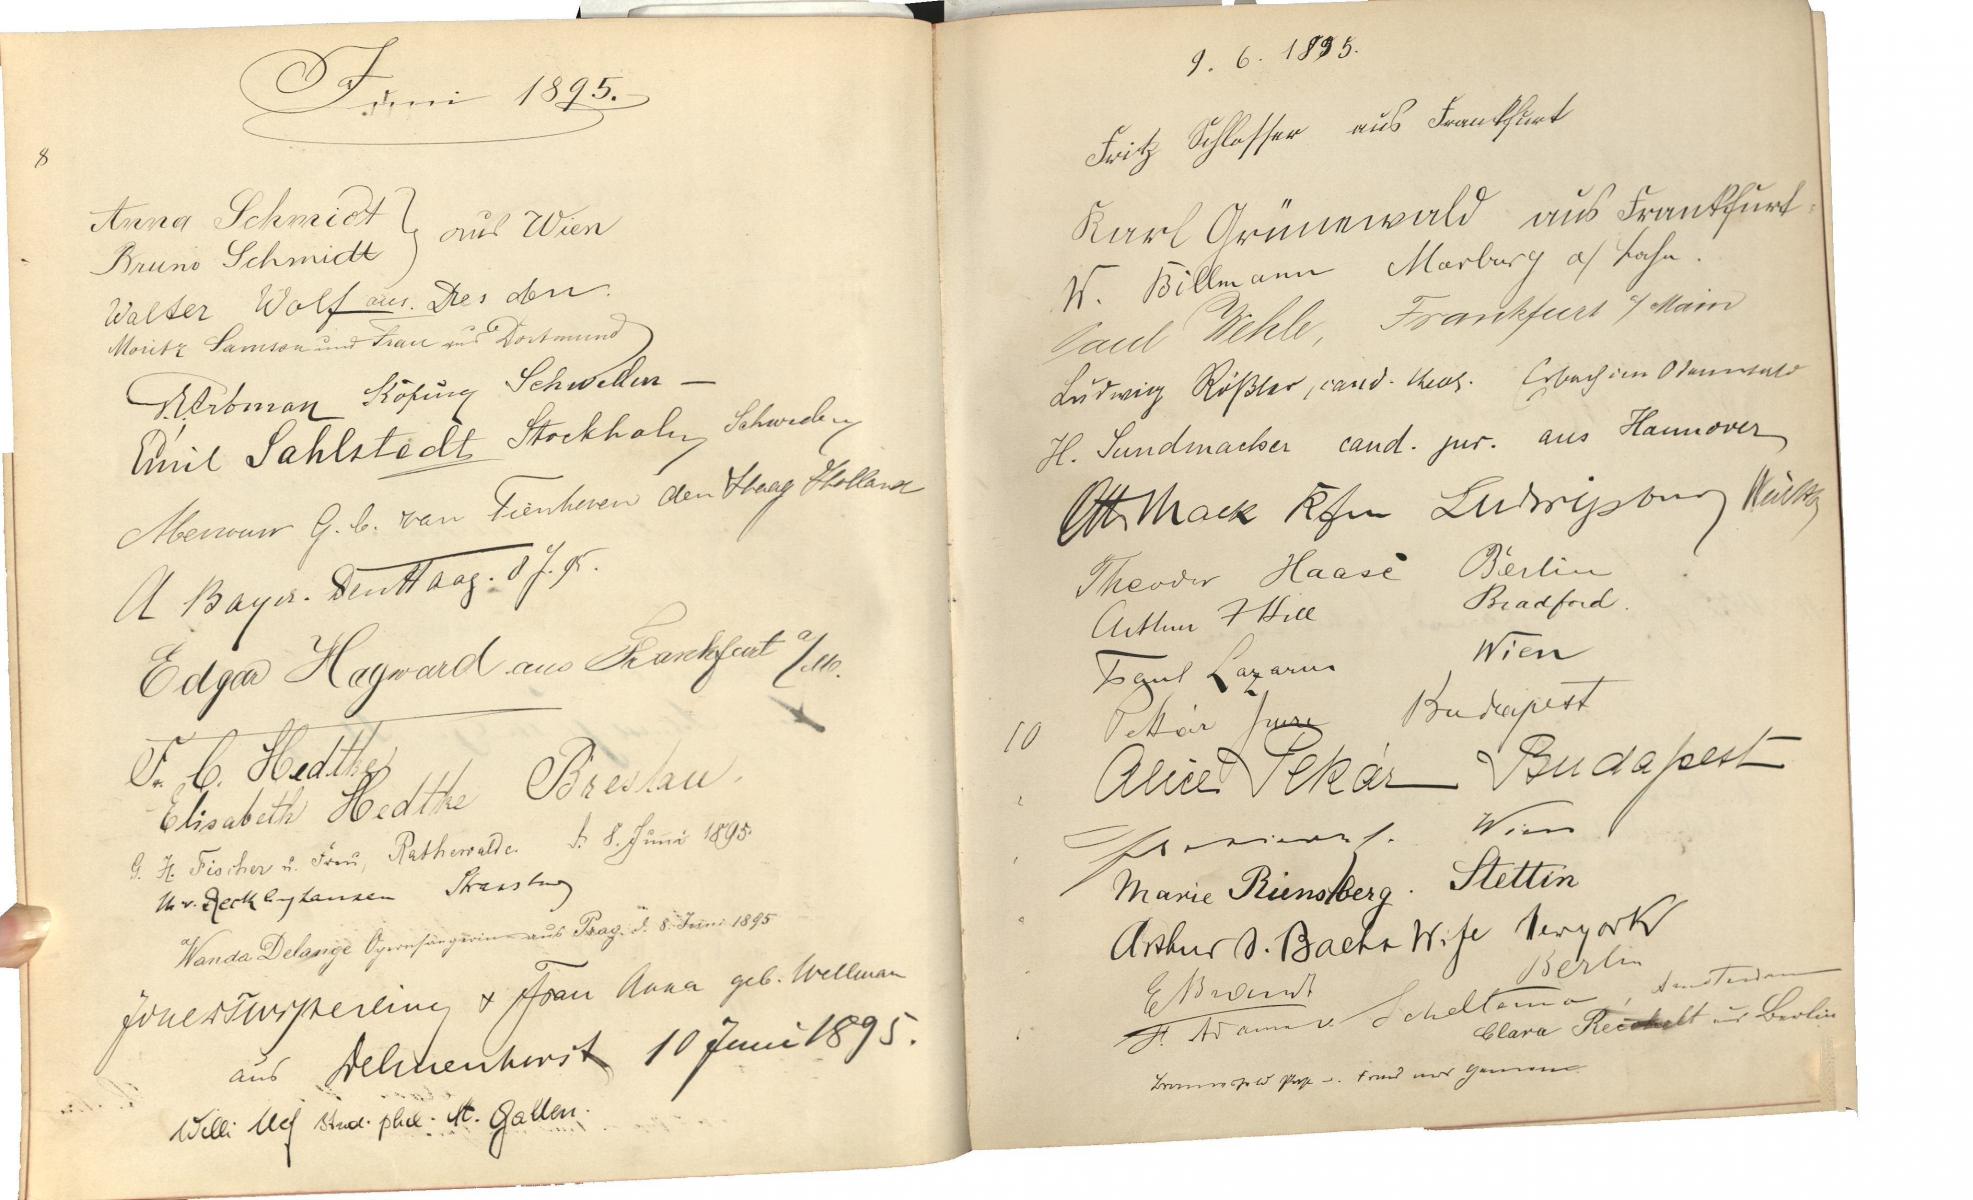 Juni 1895.
8
Anna Schmidt
Bruno Schmidt } aus Wien
Walter Wolf aus Dresden.
Moritz Samson und Frau aus Dortmund
Köping Schweden —
Emil Sahlstedt Stockholm Schweden
Mevrouw G. C. van Tienhoven den Haag Holland
A Bayer. Den Haag. 8 J. 95.
Edgar Hayward aus Frankfurt a/M.
F. C. Hedtke
Elisabeth Hedtke Breslau.
G. H. Fischer u. Frau, Rathewalde. d. 8. Juni 1895.
Strassburg
Wanda Delange Opernsängerin aus Prag. d. 8. Juni 1895
& Frau Anna geb. Wellman
aus Delmenhorst 10 Juni 1895.
Willi Nef stud. phil. St. Gallen.
9. 6. 1895.
Fritz Schlosser aus Frankfurt
Karl Grünewald aus Frankfurt
W. Billmann Marburg a/ Lahn.
Paul Wehle, Frankfurt a/ Main
Ludwig Rößler, cand. theol. Erbach im Odenwald
H. Sundmacker cand. jur. aus Hannover
Otto Mack Kfm Ludwigsburg
Theodor Haase Berlin
Arthur F Hill Bradford.
Paul Lazarus Wien
10 Pekár Imre Budapest
Alice Pekár Budapest
Wien
Marie Riensberg. Stettin
Arthur D. Bach & Wife Newyork
E Brandt Berlin
Scheltema, Amsterdam
Clara Reichelt aus Berlin